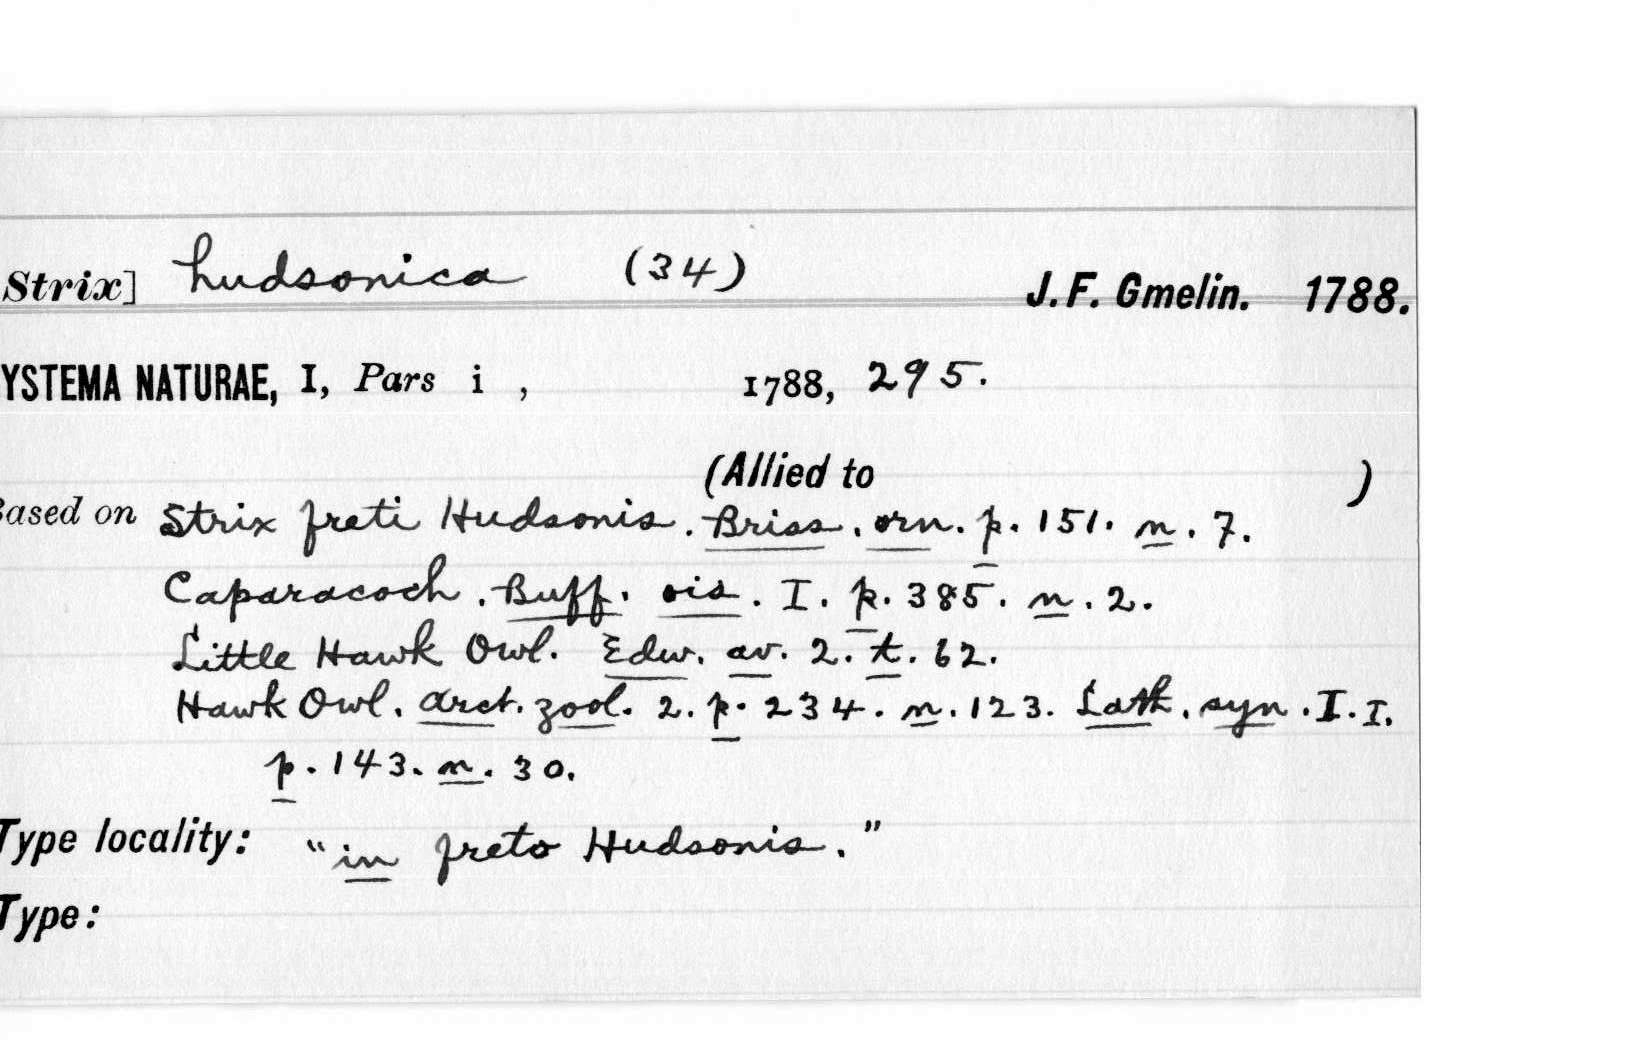 Strix] hudsonica (34) J. F. Gmelin. 1788.
YSTEMA NATURAE, I, Pars i , 1788, 295.
(Allied to )
Based on Strix freti Hudsonis. Briss. orn. p. 151. n. 7.
Caparacoch. Buff. ois. I. p. 385. n. 2.
Little Hawk Owl. Edw. av. 2. t. 62.
Hawk Owl. arct. zool. 2. p. 234. n. 123. Lath. syn. I. I.
p. 143. n. 30.
Type locality: "in freto Hudsonis."
Type: